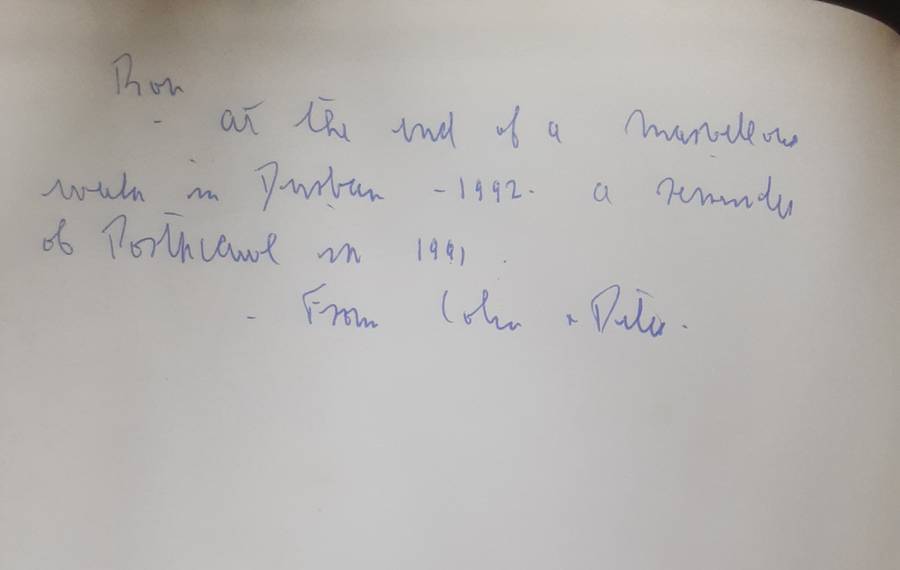 Ron
- at the end of a marvellous
week in Durban - 1992. a reminder
of Porthcawl in 1991.
- From Colin + Peter.